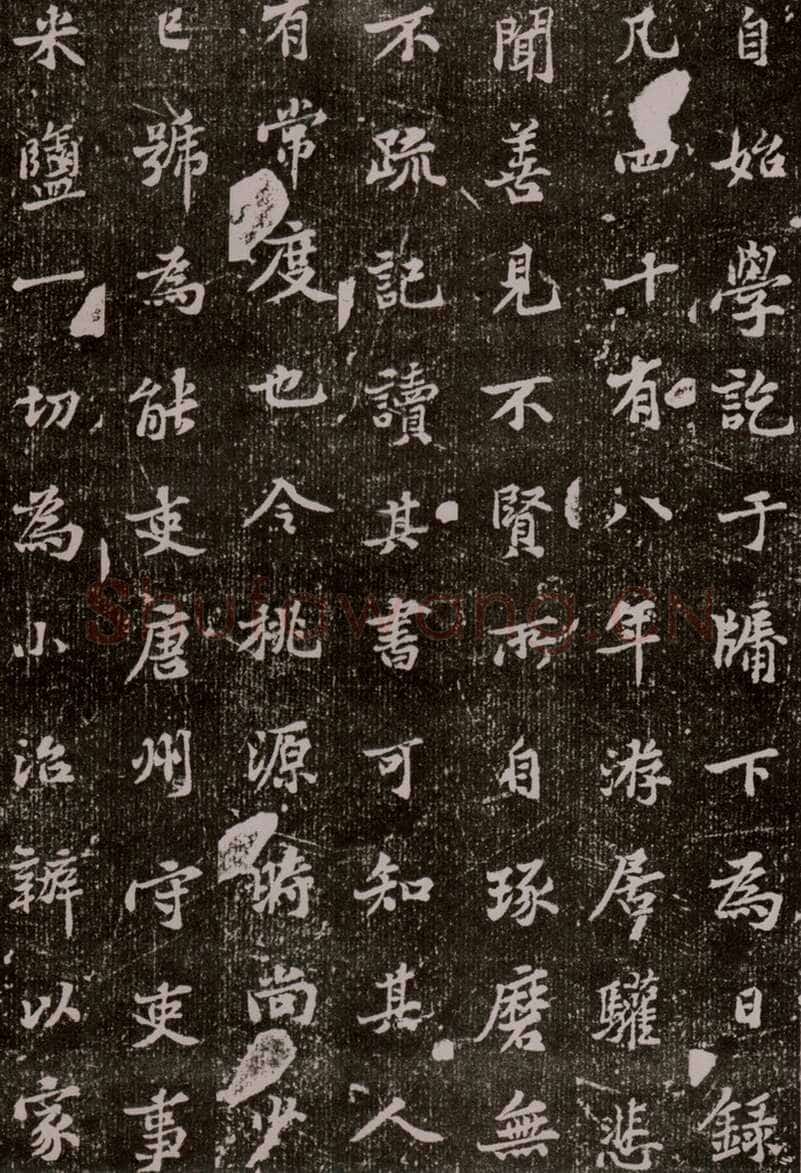 自始學訖于牖下為日錄
凡四十有八年游居驩悲
聞善見不賢所自琢磨無
不疏記讀其書可知其人
有常度也令桃源時尚少
已號為能吏唐州守吏事
米鹽一切為小治辨以家
Shufawang.CN